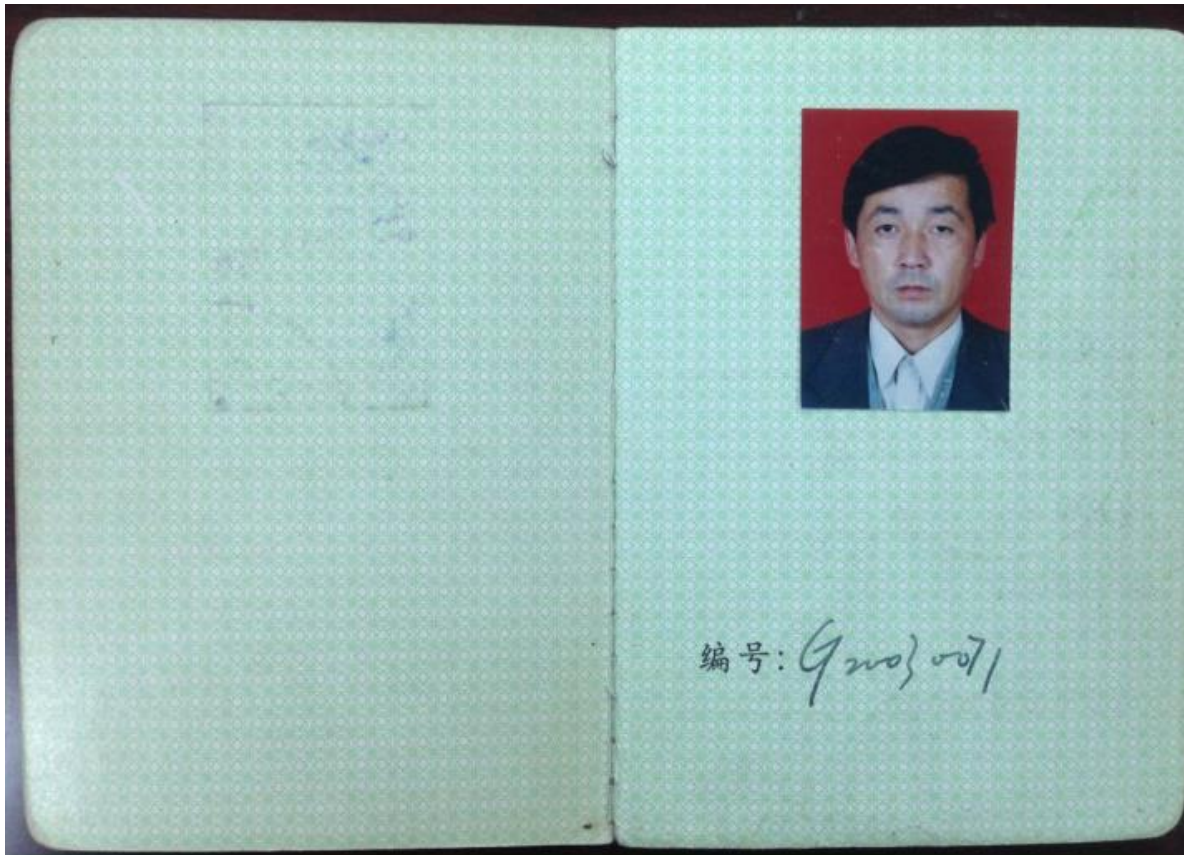 编号: G20030071